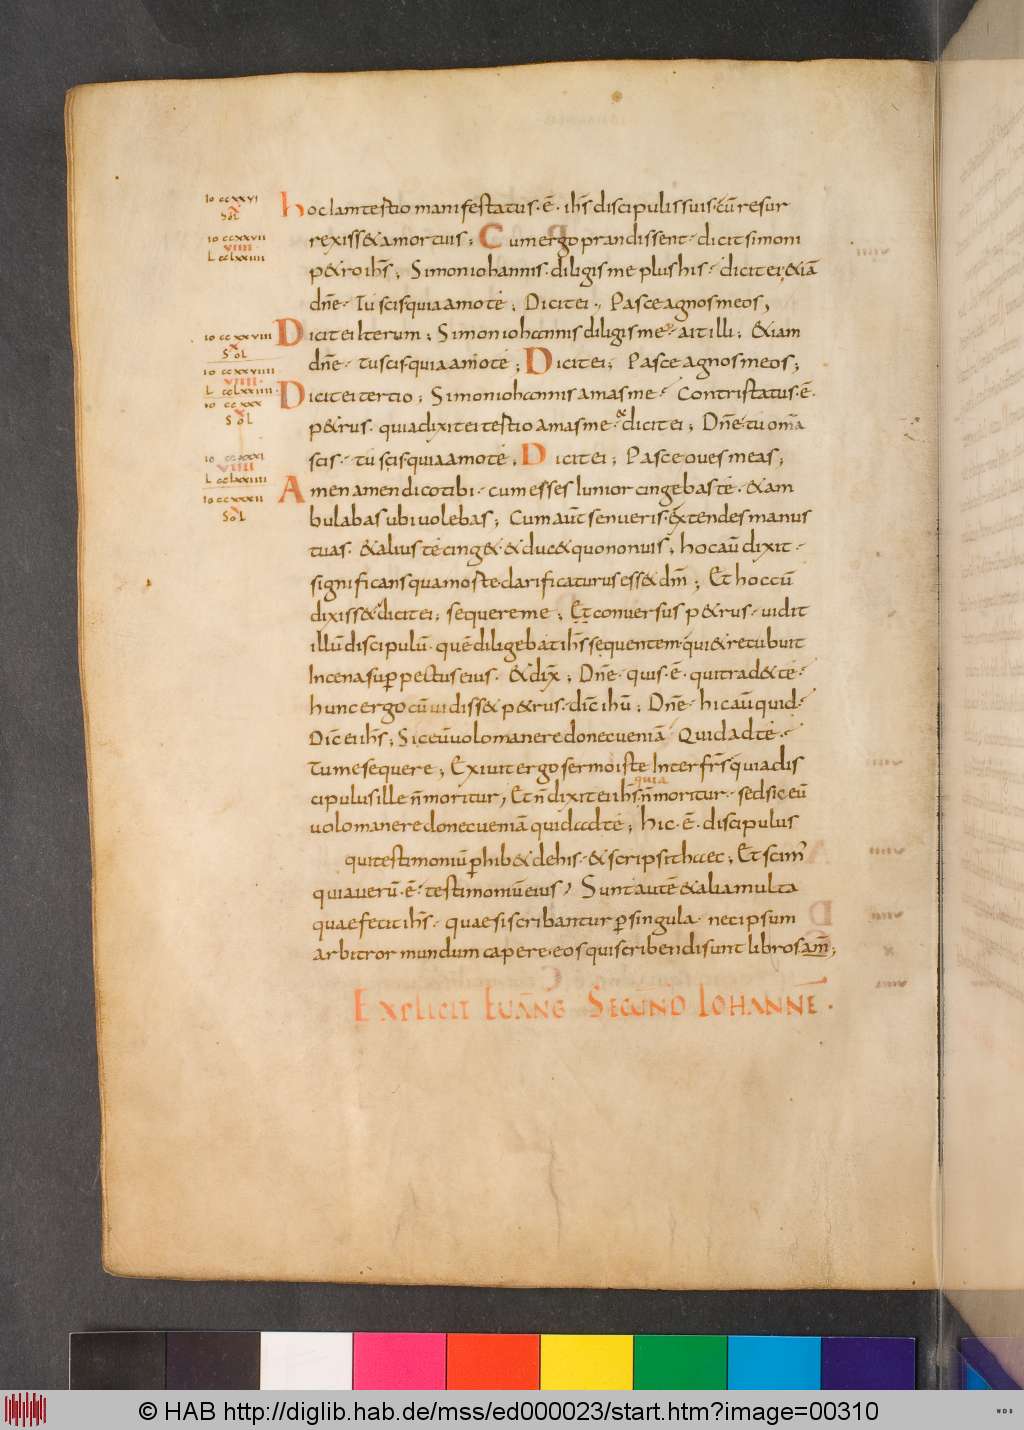 Io ccxxvi
x
Sol
Io ccxxvii
viiii
L cclxxiiii
Io ccxxviii
x
Sol
Io ccxxviiii
viiii
L cclxxiiii
Io ccxxx
x
Sol
Io ccxxxi
viiii
L cclxxiiii
Io ccxxxii
x
Sol
hoc Iam testio manifestatus · ē · ih̄s discipulis suis · cū resur
rexiss& a mortuis ; Cum ergo prandissent · dicit simoni
p&ro ih̄s ; Simon iohannis · diligis me plus his · dicit ei, &iā
dn̄e · Tu scis quia amo te ; Dicit ei · Pasce agnos meos,
Dicit ei Iterum ; Simon iohannis diligis me · ait illi ; &iam
dn̄e · tu scis quia amo te ; Dicit ei ; Pasce agnos meos ;
Dicit ei tertio ; Simon iohannis amas me · Contristatus · ē ·
p&rus · quia dixit ei testio amas me · & dicit ei ; Dn̄e · tu om̄a
scis · tu scis quia amo te · Dicit ei ; Pasce oues meas ;
Amen amen dico tibi · cum esses Iunior cingebas te · & am
bulabas ubi uolebas ; Cum aut̄ senueris · extendes manus
tuas · & alius te cing& · & duc& quo non uis ; hoc aū dixit ·
significans qua moste clarificaturus ess& dm̄ ; Et hoc cū
dixiss& dicit ei ; sequere me ; Et conversus p&rus · uidit
illū discipulū · quē diligebat ih̄s sequentem · qui & recubuit
In cena sup̄ pectus eius · & dix̄ ; Dn̄e · quis · ē · qui trad& te ·
hunc ergo cū uidiss& p&rus · dic̄ ihū ; Dn̄e · hic aū quid ·
Dic̄ ei ih̄s ; Sic eū uolo manere donec ueniā · Quid ad te ·
Tu me sequere ; Exiuit ergo sermo iste Inter fr̄s quia dis
cipulus ille n̄ moritur, Et n̄ dixit ei ih̄s quia n̄ moritur · sed sic eū
uolo manere donec ueniā quid ad te ; hic · ē · discipulus
qui testimoniū p̄hib& de his · & scripsit haec ; Et scim̄
quia uerū · ē · testimoniū eius, Sunt autē & alia multa
quae fecit ih̄s · quae si scribantur p̄ singula · nec ipsum
arbitror mundum capere · eos qui scribendi sunt libros am̄ ;
Explicit Euāng Secūnd Iohannē ·
© HAB http://diglib.hab.de/mss/ed000023/start.htm?image=00310